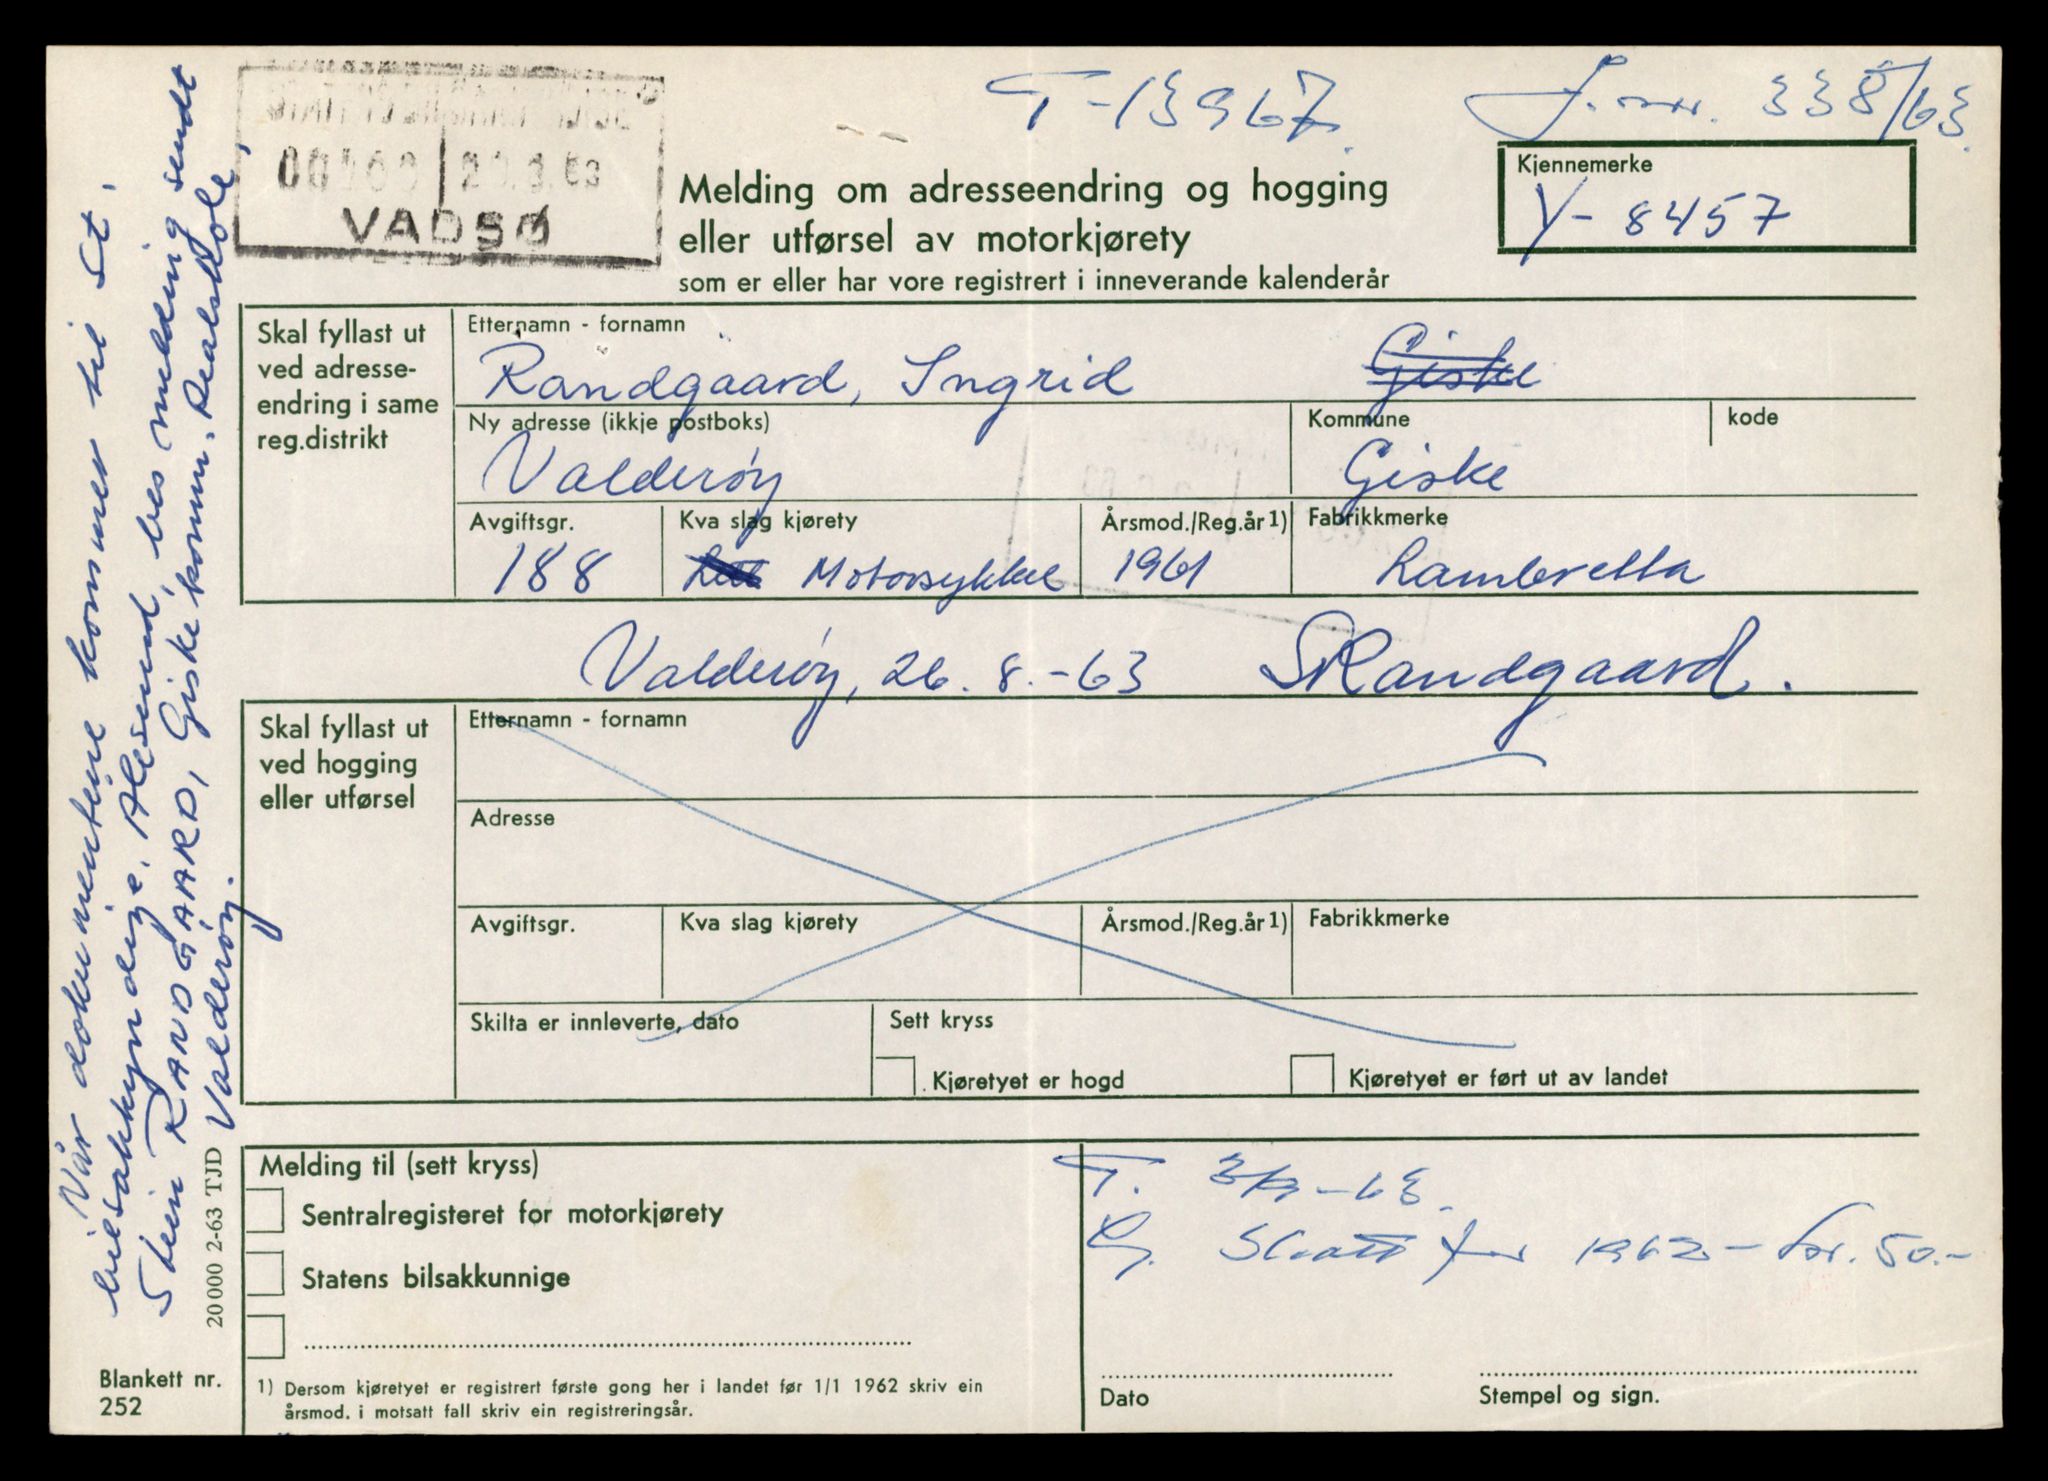 T-13967. J.nr. 338/63.
VADSØ
Melding om adresseendring og hogging
eller utførsel av motorkjørety
som er eller har vore registrert i inneverande kalenderår
Kjennemerke
Y- 8457
Skal fyllast ut
ved adresse-
endring i same
reg.distrikt
Etternamn - fornamn
Randgaard, Ingrid Giske
Ny adresse (ikkje postboks) Kommune kode
Valderøy Giske
Avgiftsgr. Kva slag kjørety Årsmod./Reg.år 1) Fabrikkmerke
188 Motorsykkel 1961 Lambretta
Valderøy, 26. 8. -63 Randgaard.
Skal fyllast ut
ved hogging
eller utførsel
Etternamn - fornamn
Adresse
Avgiftsgr. Kva slag kjørety Årsmod./Reg.år 1) Fabrikkmerke
Skilta er innleverte, dato Sett kryss
Kjøretyet er hogd Kjøretyet er ført ut av landet
Melding til (sett kryss)
Sentralregisteret for motorkjørety
Statens bilsakkunnige
T. 3/9-63.
Skatt for 1962 - kr. 50.-
Dato Stempel og sign.
1) Dersom kjøretyet er registrert første gong her i landet før 1/1 1962 skriv ein
årsmod. i motsatt fall skriv ein registreringsår.
Blankett nr.
252
20000 2-63 TJD
Når dokumentene kommer til St.
bilsakkyndige, Ålesund, bes melding sendt
Stein RANDGAARD, Giske komm. Realskole,
Valderøy.